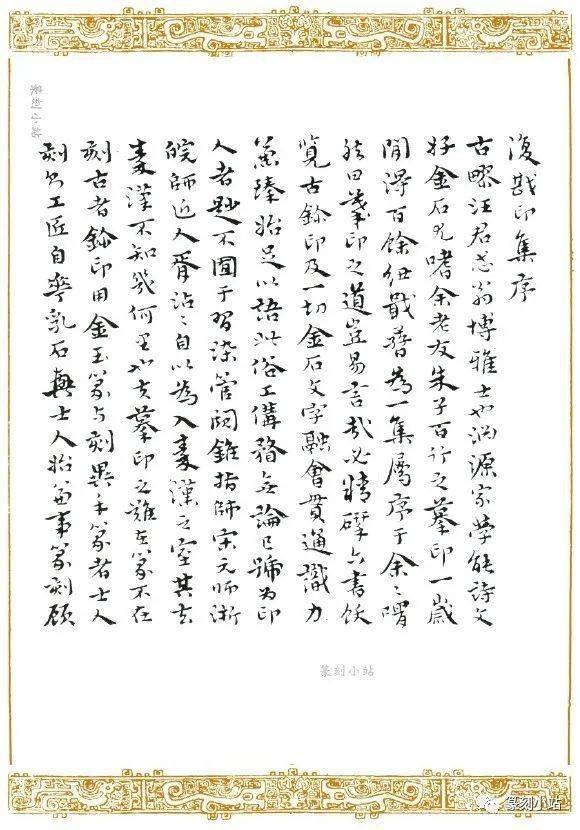 復戡印集序
古鄮汪君忘翁博雅士也淵源家學能詩文
好金石尤嗜余老友朱子百行之摹印一歲
間得百餘紐戢為一集屬序于余々喟
然曰篆印之道豈易言哉必精擘六書飫
覽古鉨印及一切金石文字融會貫通識力
兼臻始足以語此俗工傋瞀無論已號为印
人者尟不囿于習染管闚錐指師宋元師浙
皖師近人胥沾々自以為入秦漢之室其去
秦漢不知幾何里夫摹印之難在篆不在
刻古者鉨印用金玉篆与刻異手篆者士人
刻工匠自華乳石興士人始兼事篆刻顧
篆刻小站
篆刻小站
篆刻小站